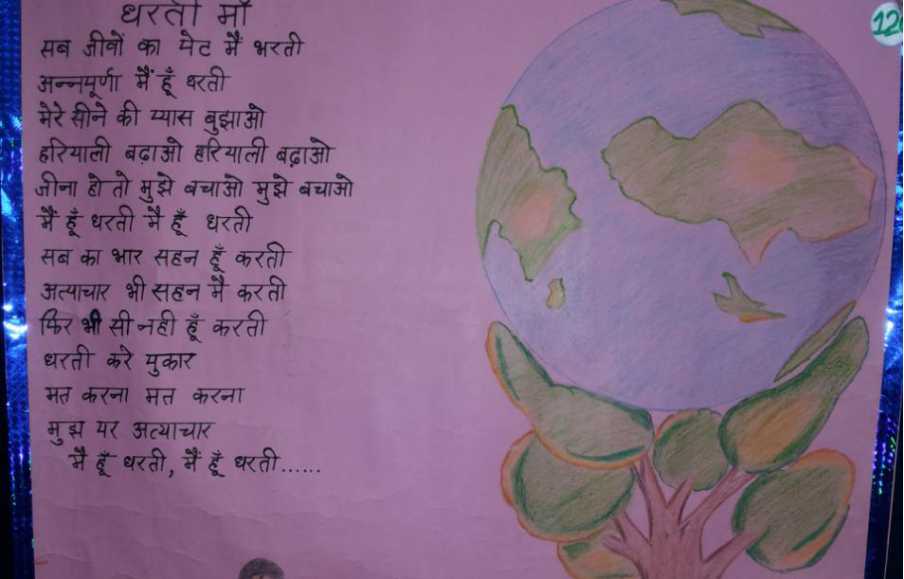 धरती माँ
12
सब जीवों का पेट मैं भरती
अन्नपूर्णा मैं हूँ धरती
मेरे सीने की प्यास बुझाओ
हरियाली बढ़ाओ हरियाली बढ़ाओ
जीना हो तो मुझे बचाओ मुझे बचाओ
मैं हूँ धरती मै हूँ धरती
सब का भार सहन हूँ करती
अत्याचार भी सहन मै करती
फिर भी सी नही हूँ करती
धरती करे पुकार
मत करना मत करना
मुझ पर अत्याचार
मै हूँ धरती, मैं हूँ धरती......